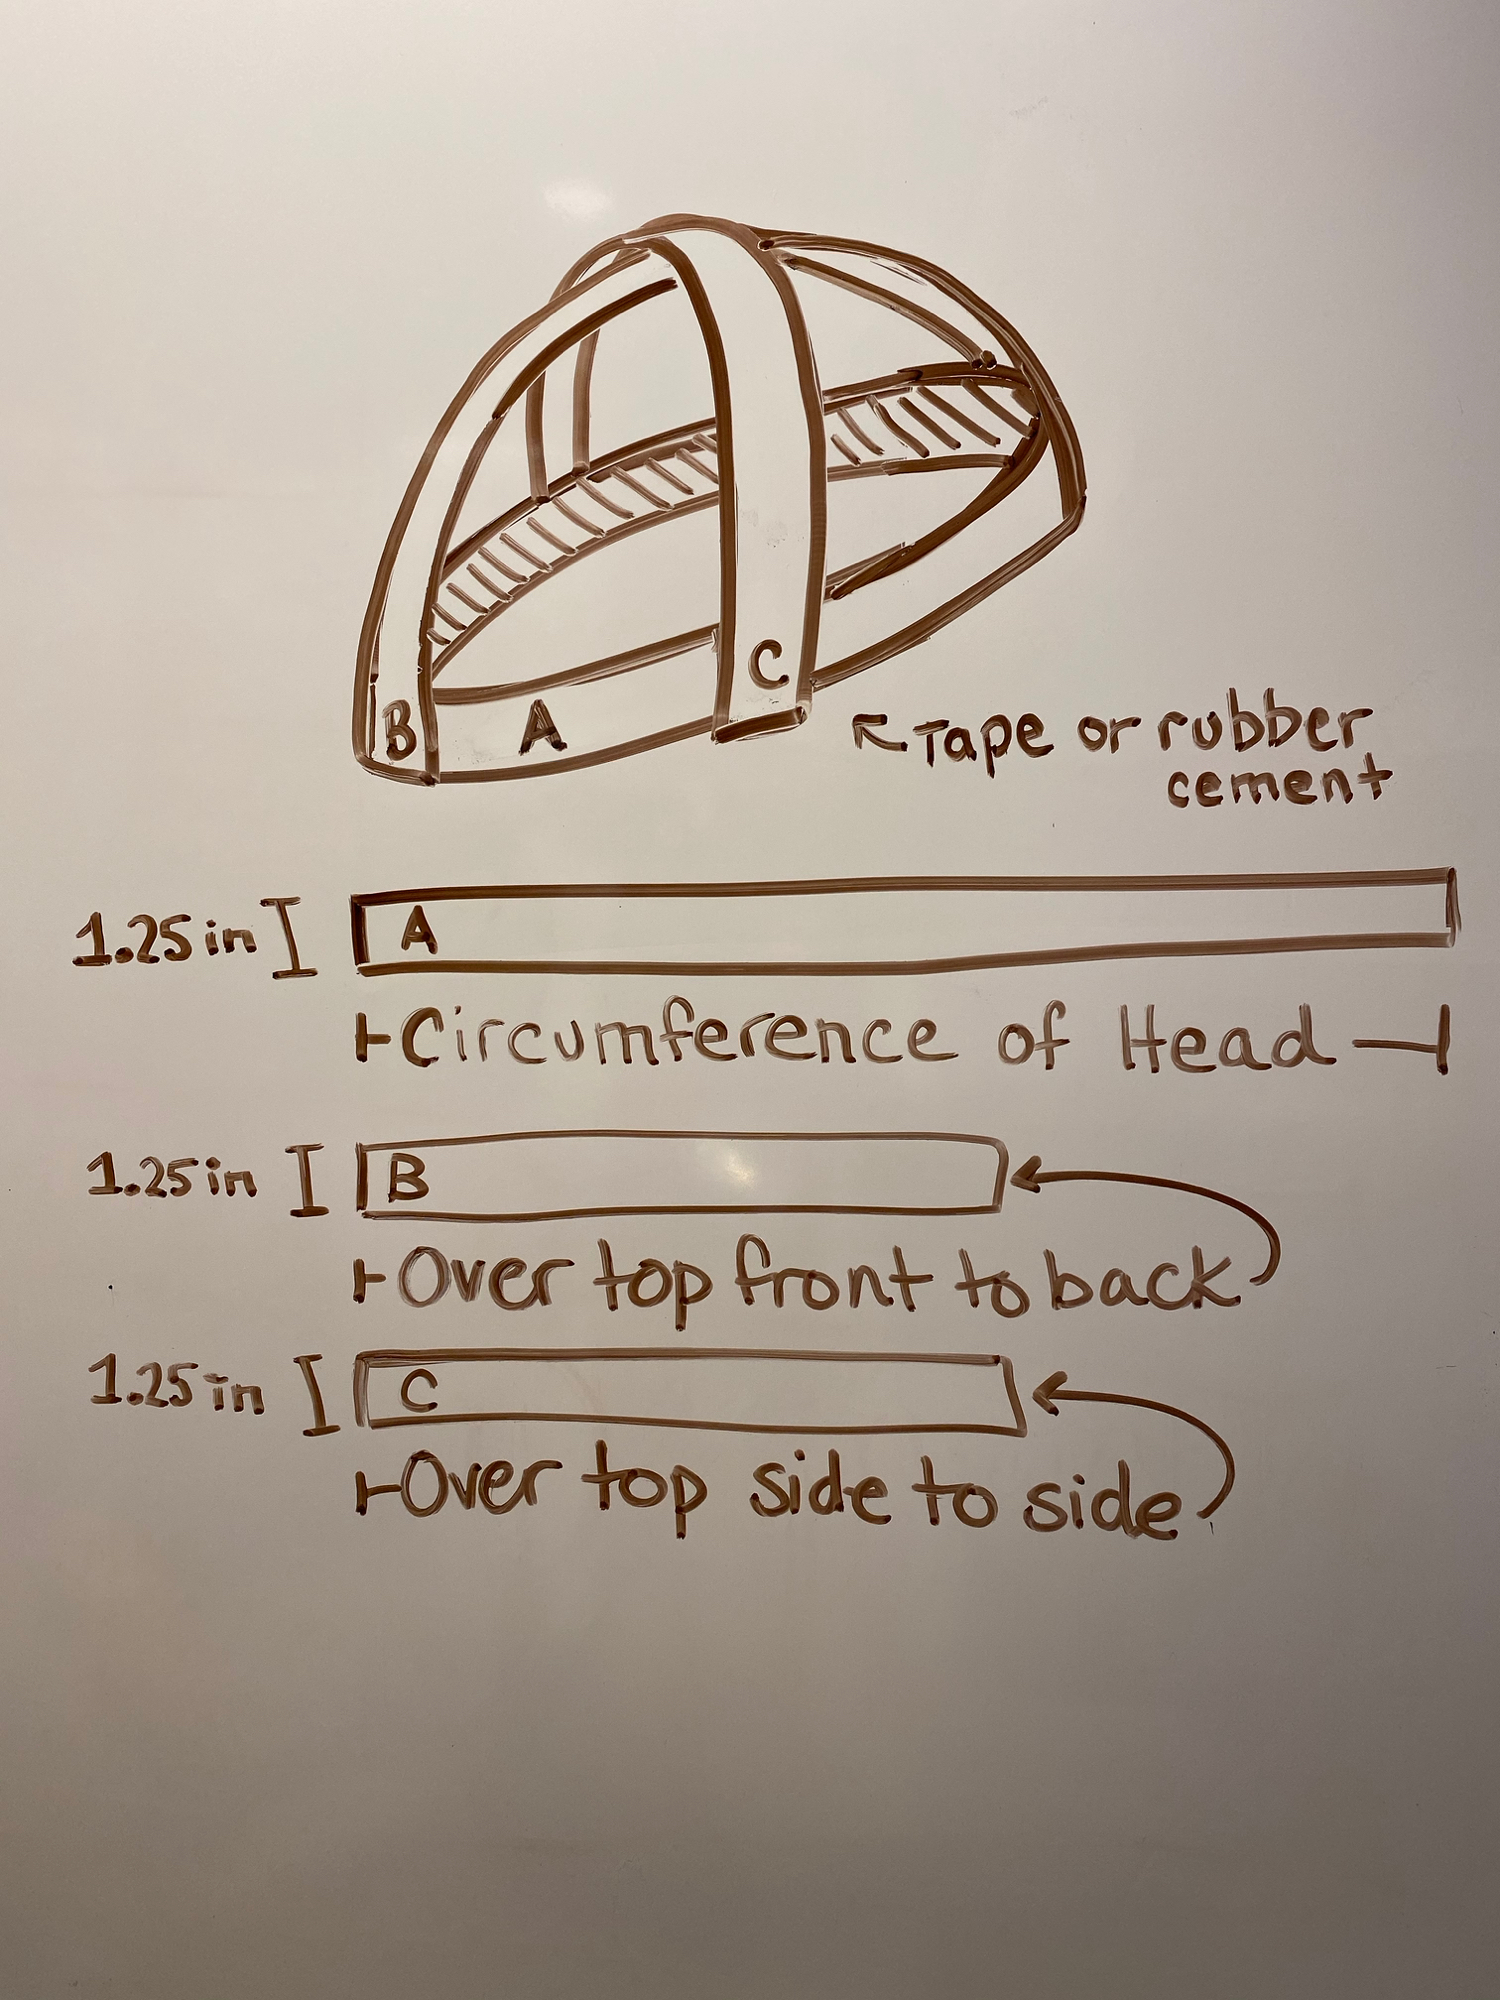 B
A
C
Tape or rubber
cement
1.25 in
A
Circumference of Head
1.25 in
B
Over top front to back
1.25 in
C
Over top side to side